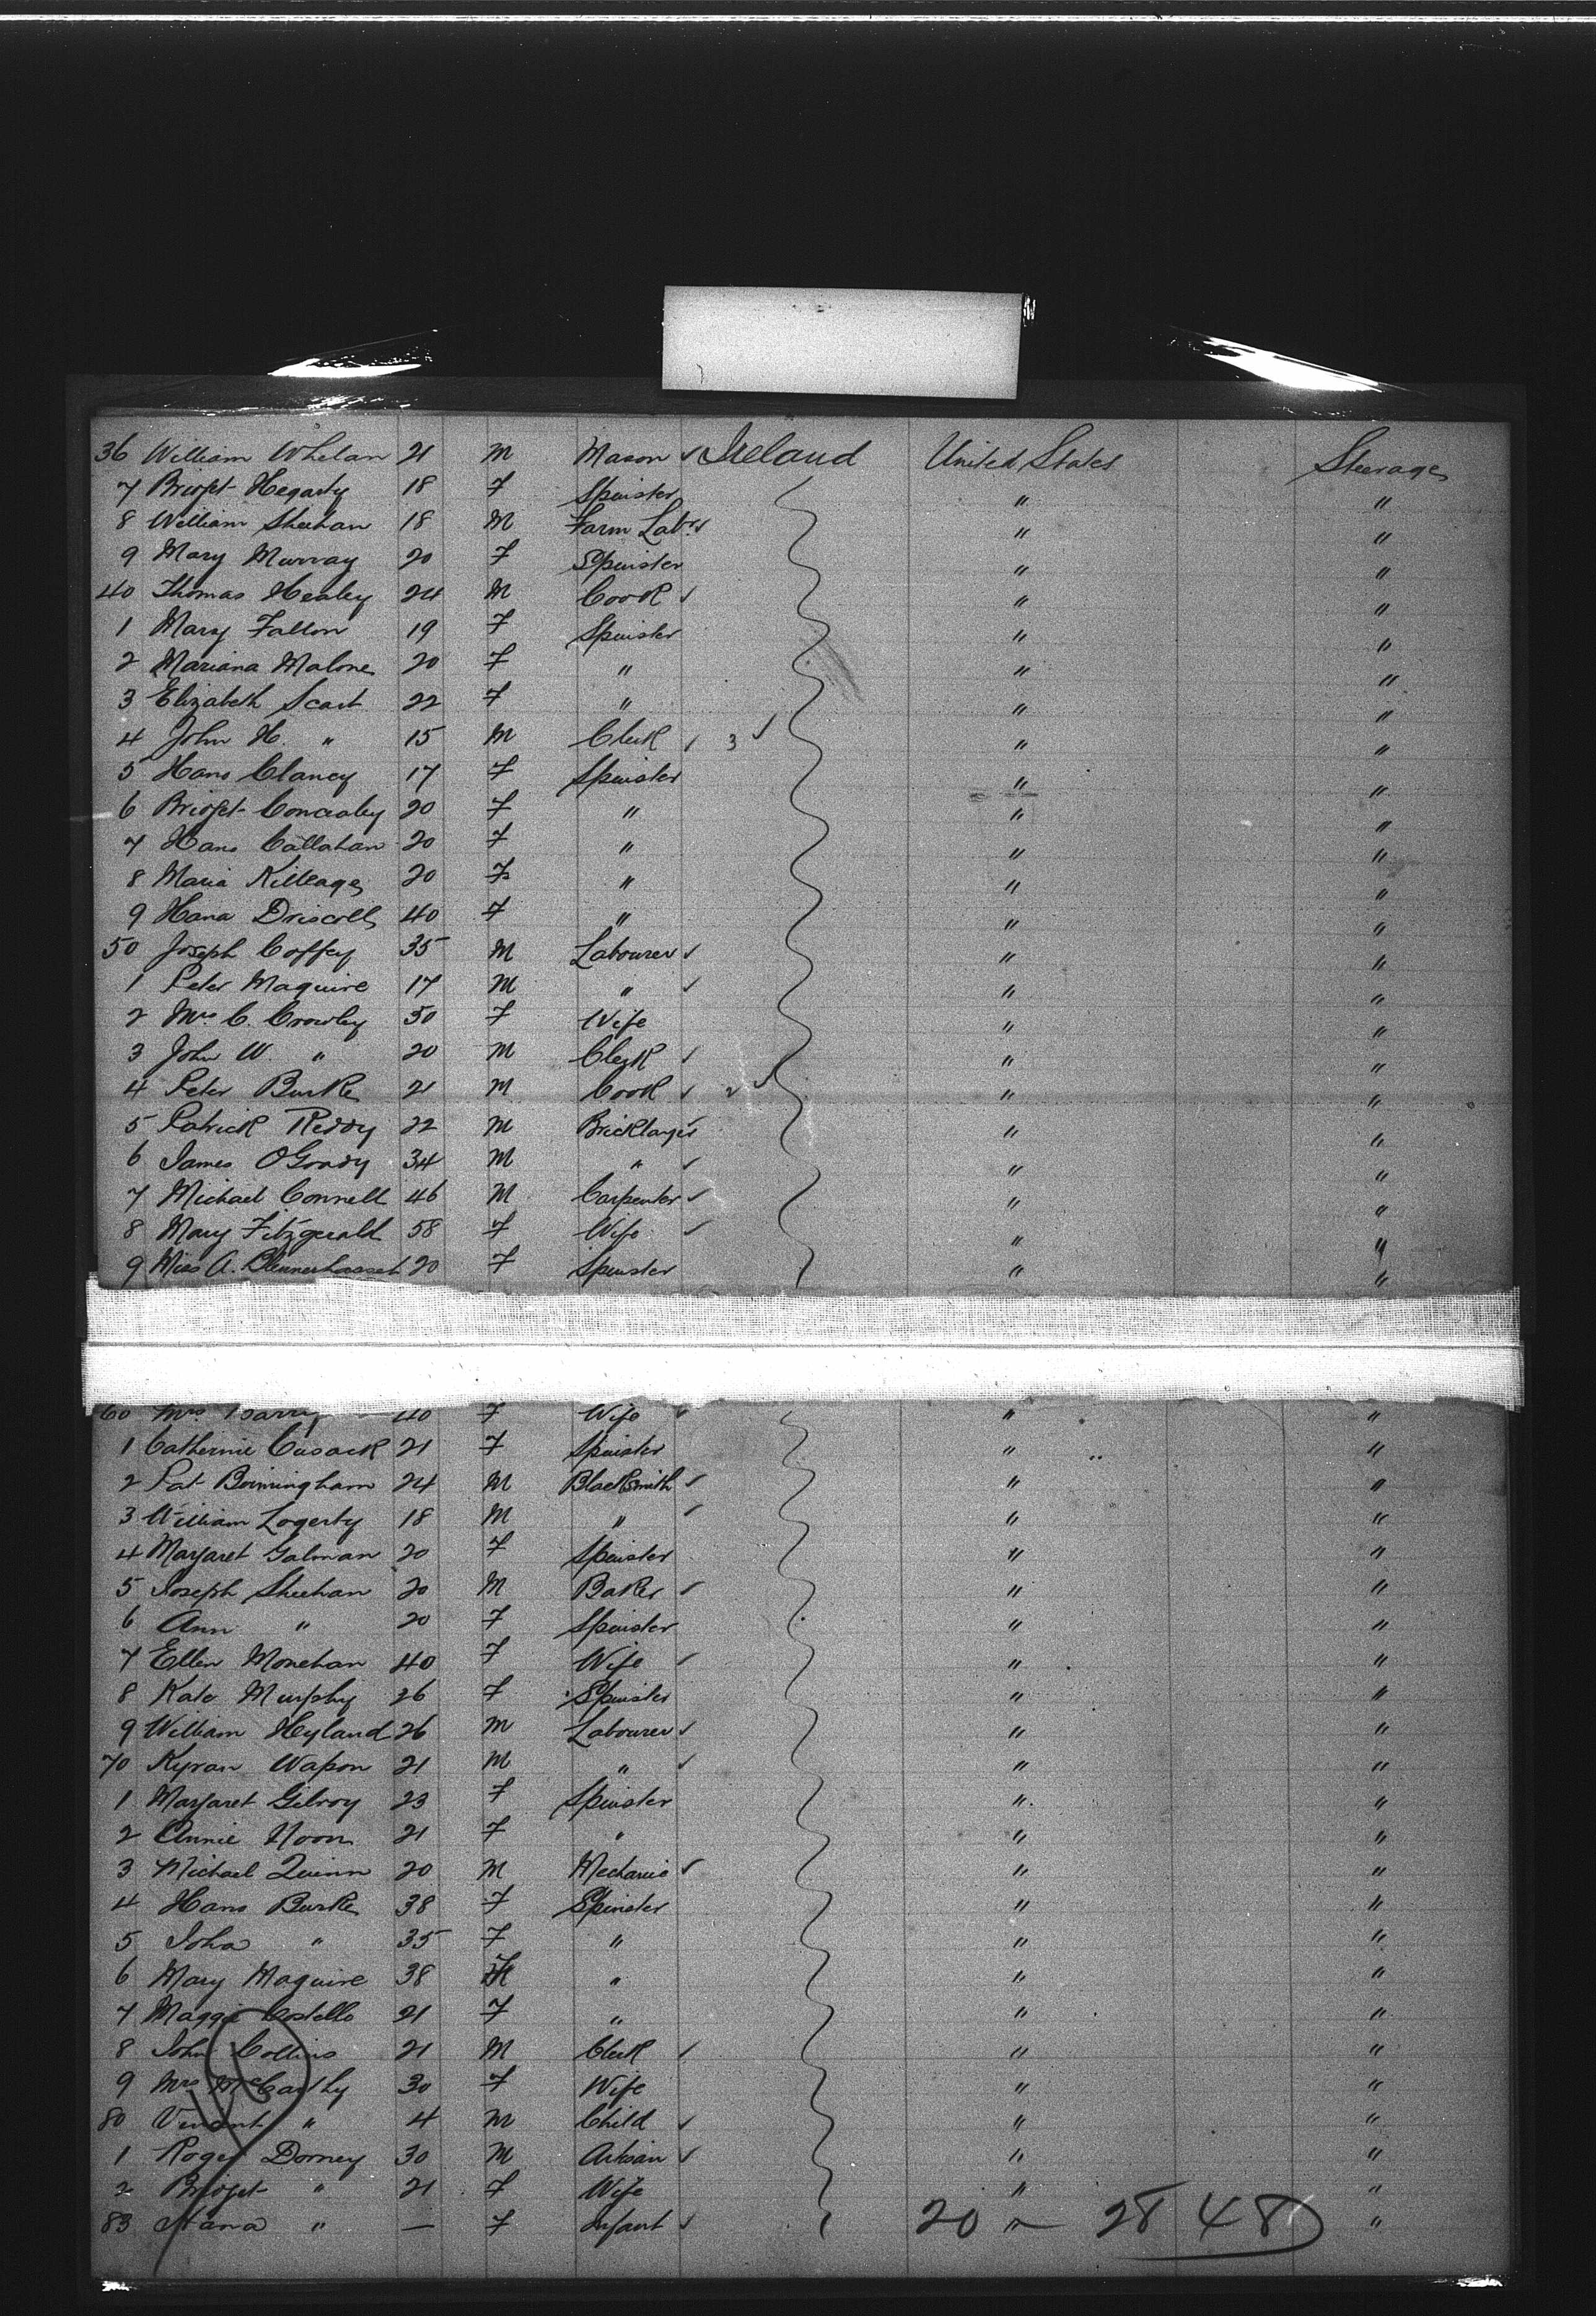 36 William Whelan 21 M Mason ✓ Ireland United States Steerage
7 Bridget Hegarty 18 F Spinster " "
8 William Sheehan 18 M Farm Labr ✓ " "
9 Mary Murray 20 F Spinster " "
40 Thomas Healey 24 M Cook ✓ " "
1 Mary Fallon 19 F Spinster " "
2 Mariana Malone 20 F " " "
3 Elizabeth Scart 22 F " " "
4 John H. " 15 M Clerk ✓ 3 ✓ " "
5 Hano Clancy 17 F Spinster " "
6 Bridget Concealey 20 F " " "
7 Hano Callahan 20 F " " "
8 Maria Killeage 20 F " " "
9 Hana Driscoll 40 F " " "
50 Joseph Coffey 35 M Labourer ✓ " "
1 Peter Maguire 17 M " ✓ " "
2 Mrs C. Crowley 50 F Wife " "
3 John W. " 20 M Clerk ✓ " "
4 Peter Burke 21 M Cook ✓ 2 ✓ " "
5 Patrick Reddy 22 M Bricklayer ✓ " "
6 James O'Grady 34 M " ✓ " "
7 Michael Connell 46 M Carpenter ✓ " "
8 Mary Fitzgerald 58 F Wife ✓ " "
9 Miss A. Blennerhassett 20 F Spinster " "
60 Mrs Barry 40 F Wife ✓ " "
1 Catherine Cusack 21 F Spinster " "
2 Pat Bermingham 24 M Blacksmith ✓ " "
3 William Logerty 18 M " ✓ " "
4 Margaret Galman 20 F Spinster " "
5 Joseph Sheehan 20 M Baker ✓ " "
6 Ann " 20 F Spinster " "
7 Ellen Monehan 40 F Wife ✓ " "
8 Kate Murphy 26 F Spinster " "
9 William Hyland 26 M Labourer ✓ " "
70 Kyran Wapon 21 M " ✓ " "
1 Margaret Gilroy 23 F Spinster " "
2 Annie Noon 21 F " " "
3 Michael Quinn 20 M Mechanic ✓ " "
4 Hano Burke 38 F Spinster " "
5 Joha " 35 F " " "
6 Mary Maguire 38 F " " "
7 Maggie Costello 21 F " " "
8 John Collins 21 M Clerk ✓ " "
9 Mrs McCarthy 30 F Wife " "
80 Vincent " 4 M Child ✓ " "
1 Roger Dorney 30 M Artisan ✓ " "
2 Bridget " 21 F Wife " "
83 Hana " — F Infant ✓ " "
20 — 28 48